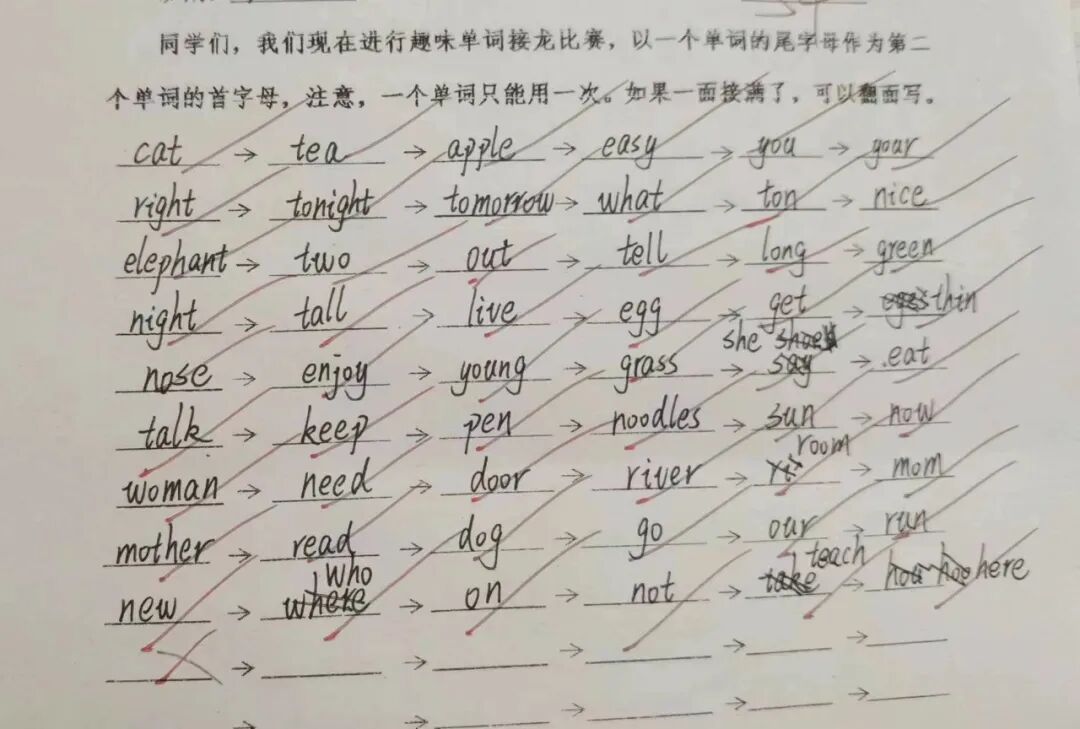 同学们，我们现在进行趣味单词接龙比赛，以一个单词的尾字母作为第二
个单词的首字母，注意，一个单词只能用一次。如果一面接满了，可以翻面写。
cat → tea → apple → easy → you → your
right → tonight → tomorrow → what → ton → nice
elephant → two → out → tell → long → green
night → tall → live → egg → get → thin
nose → enjoy → young → grass → she → eat
talk → keep → pen → noodles → sun → now
woman → need → door → river → room → mom
mother → read → dog → go → our → run
new → who → on → not → teach → here
→ → → → →
→ → → → →